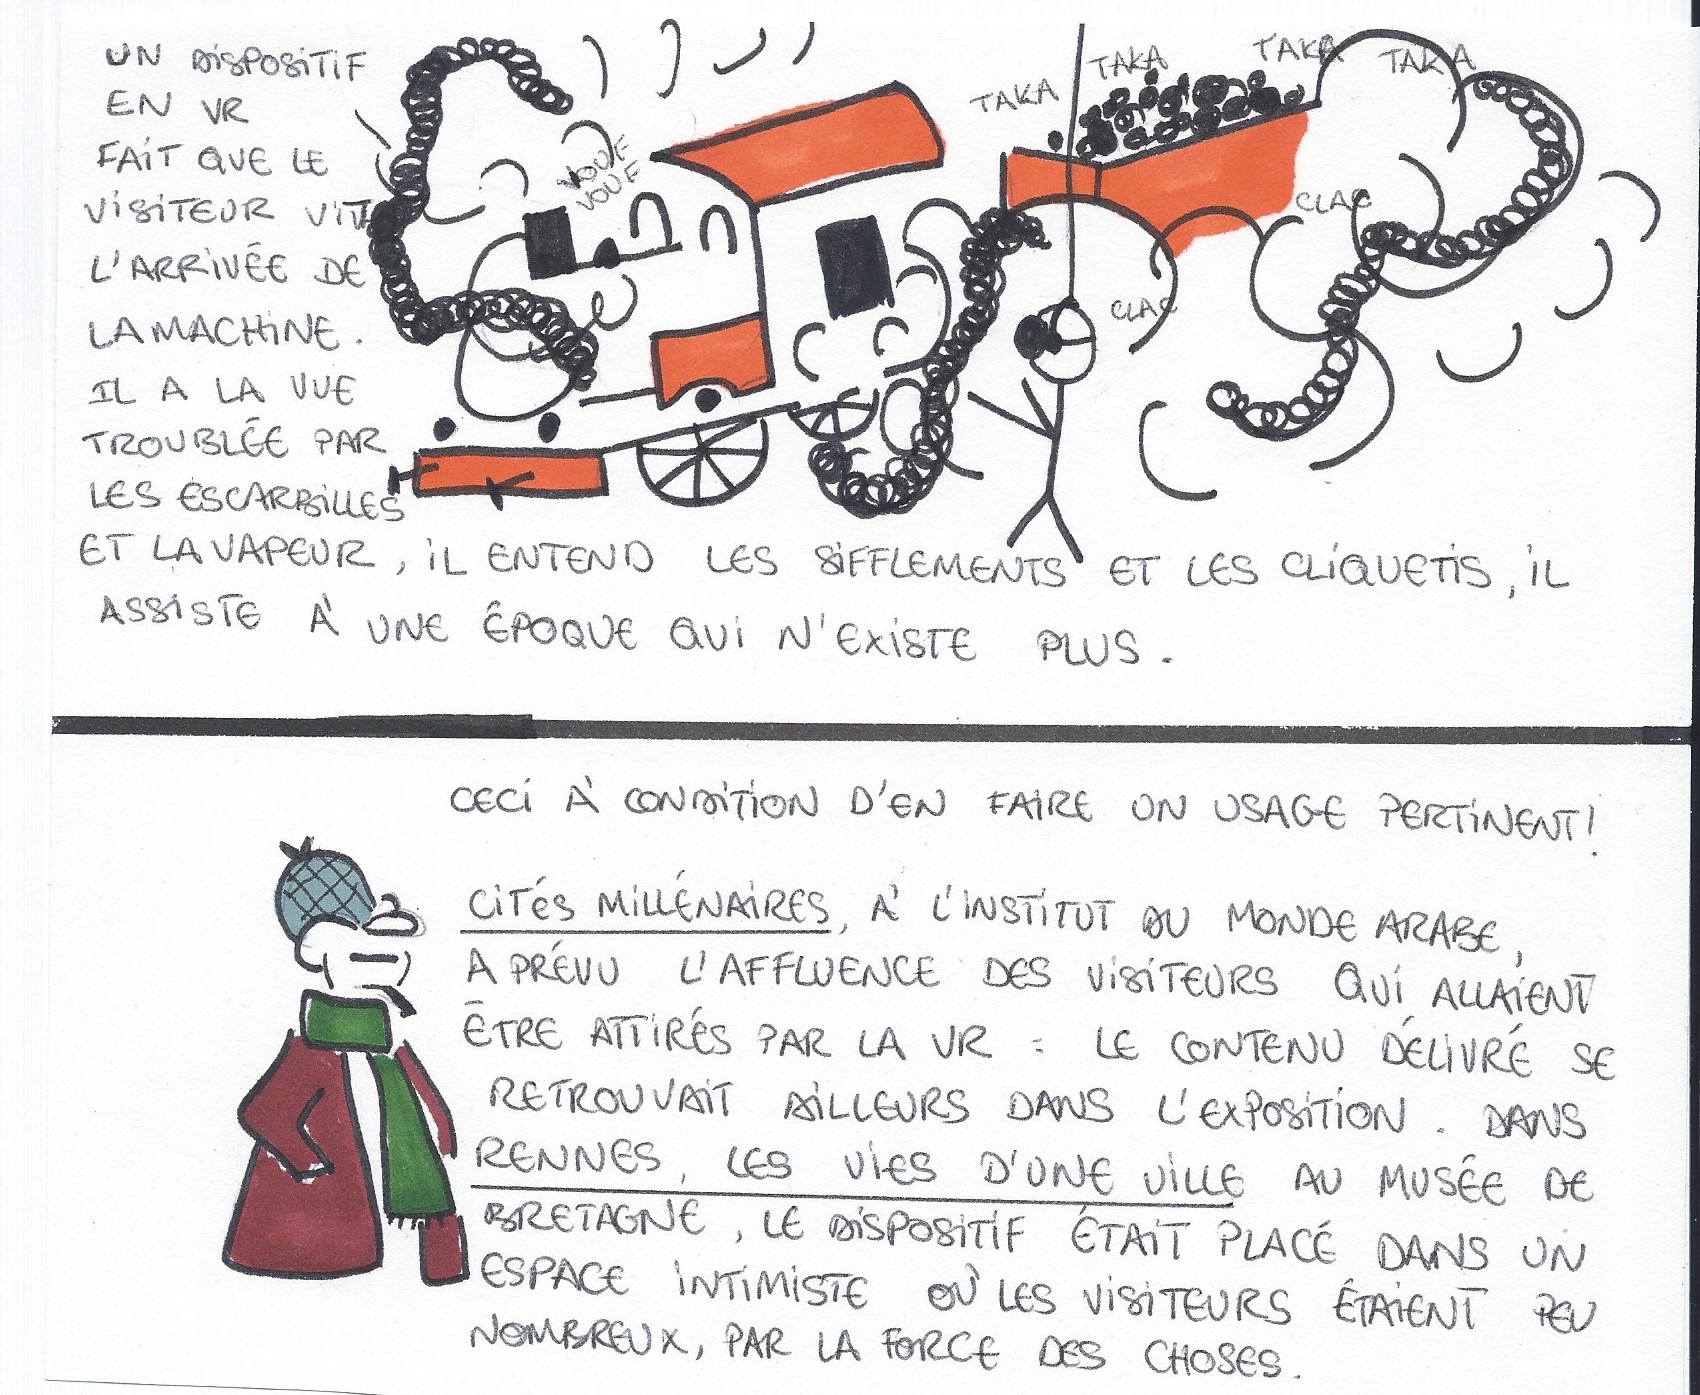 UN DISPOSITIF
EN VR
FAIT QUE LE
VISITEUR VIT
L'ARRIVÉE DE
LA MACHINE.
IL A LA VUE
TROUBLÉE PAR
LES ESCARBILLES
ET LA VAPEUR, IL ENTEND LES SIFFLEMENTS ET LES CLIQUETIS, IL
ASSISTE À UNE ÉPOQUE QUI N'EXISTE PLUS.
VOUF
VOUF
TAKA
TAKA
TAKA
TAKA
CLAC
CLAC
CECI À CONDITION D'EN FAIRE UN USAGE PERTINENT!
CITÉS MILLÉNAIRES, À L'INSTITUT DU MONDE ARABE,
A PRÉVU L'AFFLUENCE DES VISITEURS QUI ALLAIENT
ÊTRE ATTIRÉS PAR LA VR : LE CONTENU DÉLIVRÉ SE
RETROUVAIT AILLEURS DANS L'EXPOSITION. DANS
RENNES, LES VIES D'UNE VILLE AU MUSÉE DE
BRETAGNE, LE DISPOSITIF ÉTAIT PLACÉ DANS UN
ESPACE INTIMISTE OÙ LES VISITEURS ÉTAIENT PEU
NOMBREUX, PAR LA FORCE DES CHOSES.